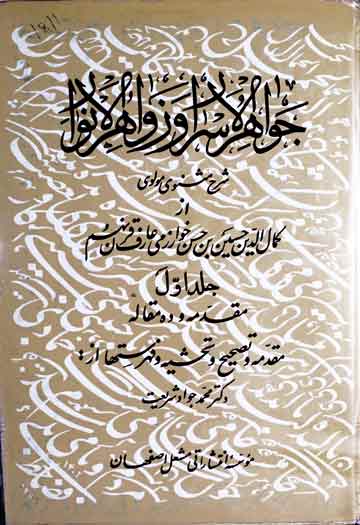 ۱۶۱۱
جواهرالاسرار و زواهرالانوار
شرح مثنوی مولوی
از
کمال الدین حسین بن حسن خوارزمی عارف قرن نهم
جلد اول
مقدمه و ده مقاله
مقدمه و تصحیح و تحشیه و فهرستها از:
دکتر محمد جواد شریعت
مؤسسه انتشاراتی مشعل اصفهان